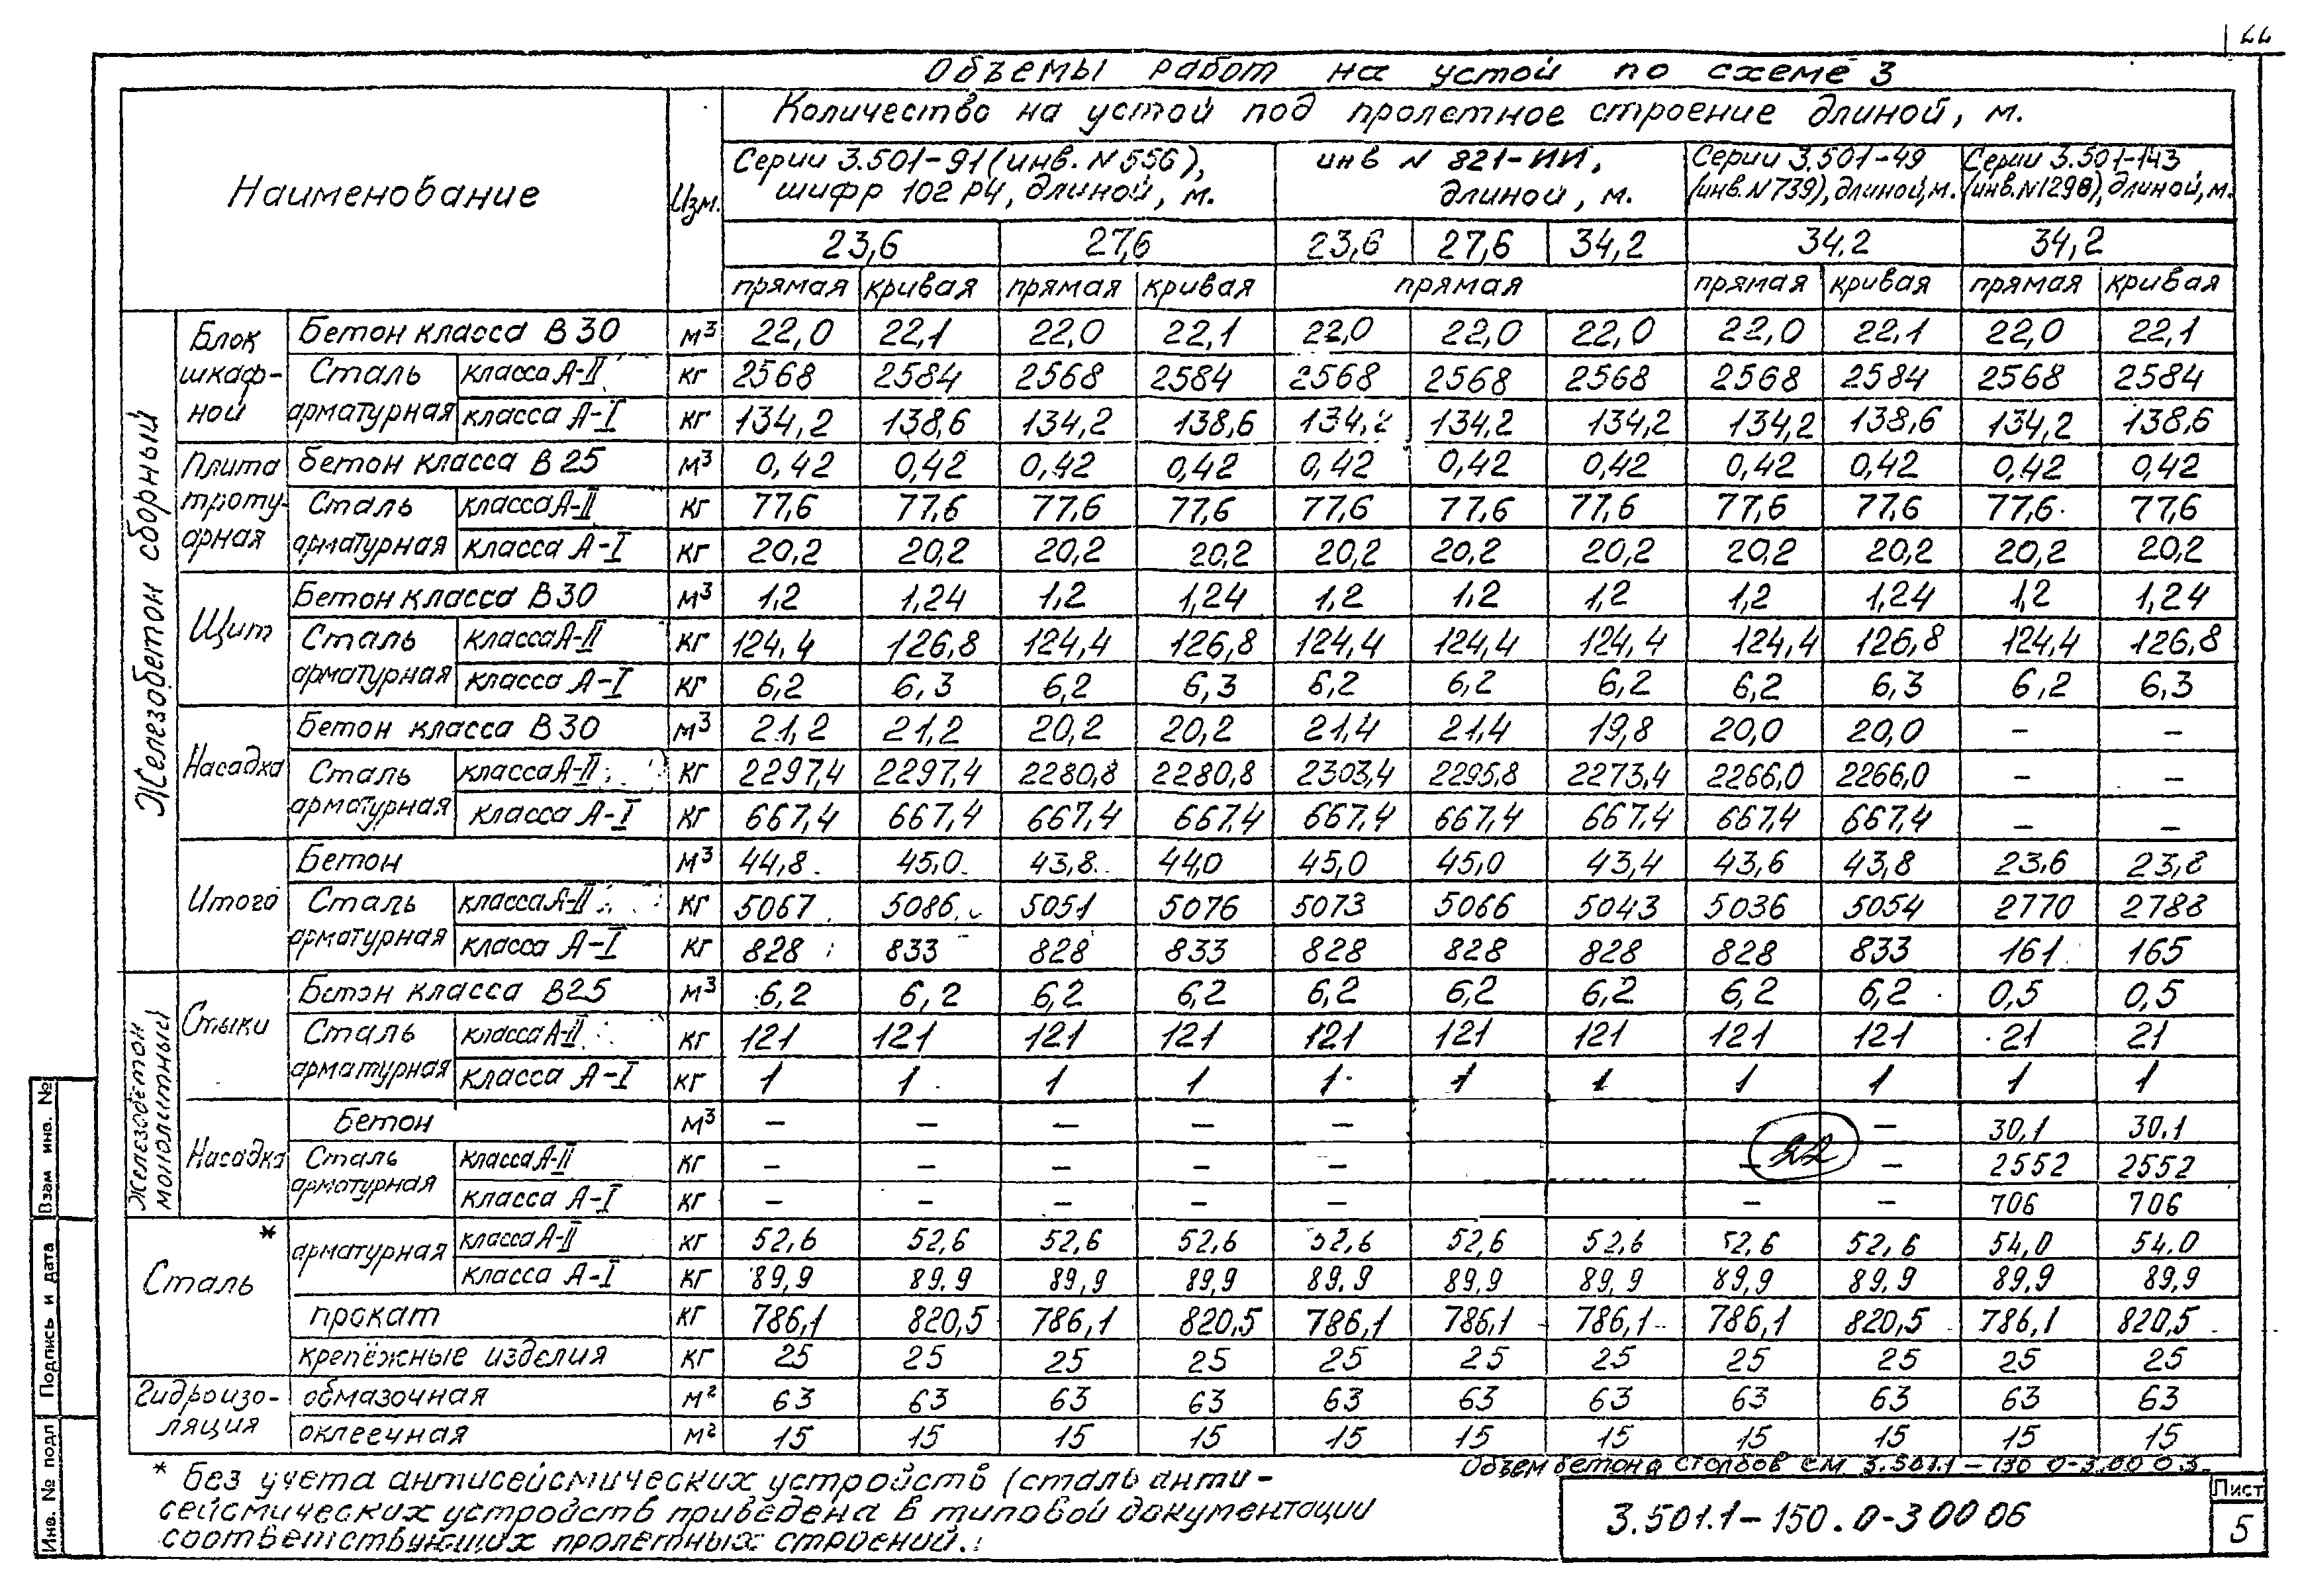 22
Объемы работ на устой по схеме 3
Наименование Изм. Количество на устой под пролетное строение длиной, м.
Серии 3.501-91 (инв. N 556), шифр 102 РЧ, длиной, м.
инв N 821-ИИ, длиной, м.
Серии 3.501-49 (инв. N 739), длиной, м.
Серии 3.501-143 (инв. N 1298), длиной, м.
23,6 27,6 23,6 27,6 34,2 34.2 34,2
прямая кривая прямая кривая прямая прямая кривая прямая кривая
Железобетон сборный
Блок шкафной
Бетон класса В30 м³ 22,0 22,1 22,0 22,1 22,0 22,0 22,0 22,0 22,1 22,0 22,1
Сталь арматурная
класса А-II кг 2568 2584 2568 2584 2568 2568 2568 2568 2584 2568 2584
класса А-I кг 134,2 138,6 134,2 138,6 134,2 134,2 134,2 134,2 138,6 134,2 138,6
Плита тротуарная
бетон класса В25 м³ 0,42 0,42 0,42 0,42 0,42 0,42 0,42 0,42 0,42 0,42 0,42
Сталь арматурная
класса А-II кг 77,6 77,6 77,6 77,6 77,6 77,6 77,6 77,6 77,6 77,6 77,6
класса А-I кг 20,2 20,2 20,2 20,2 20,2 20,2 20,2 20,2 20,2 20,2 20,2
Щит
Бетон класса В30 м³ 1,2 1,24 1,2 1,24 1,2 1,2 1,2 1,2 1,24 1,2 1,24
Сталь арматурная
класса А-II кг 124,4 126,8 124,4 126,8 124,4 124,4 124,4 124,4 126,8 124,4 126,8
класса А-I кг 6,2 6,3 6,2 6,3 6,2 6,2 6,2 6,2 6,3 6,2 6,3
Насадка
Бетон класса В30 м³ 21,2 21,2 20,2 20,2 21,4 21,4 19,8 20,0 20,0 – –
Сталь арматурная
класса А-II кг 2297,4 2297,4 2280,8 2280,8 2303,4 2295,8 2273,4 2266,0 2266,0 – –
класса А-I кг 667,4 667,4 667,4 667,4 667,4 667,4 667,4 667,4 667,4 – –
Итого
Бетон м³ 44,8 45,0 43,8 44,0 45,0 45,0 43,4 43,6 43,8 23,6 23,8
Сталь арматурная
класса А-II кг 5067 5086 5051 5076 5073 5066 5043 5036 5054 2770 2788
класса А-I кг 828 833 828 833 828 828 828 828 833 161 165
Железобетон монолитный
Стыки
Бетон класса В25 м³ 6,2 6,2 6,2 6,2 6,2 6,2 6,2 6,2 6,2 0,5 0,5
Сталь арматурная
класса А-II кг 121 121 121 121 121 121 121 121 121 21 21
класса А-I кг 1 1 1 1 1 1 1 1 1 1 1
Насадка
Бетон м³ – – – – – – 30,1 30,1
Сталь арматурная
класса А-II кг – – – – – – 22 – 2552 2552
класса А-I кг – – – – – – – 706 706
Сталь *
арматурная
класса А-II кг 52,6 52,6 52,6 52,6 52,6 52,6 52,6 52,6 52,6 54,0 54.0
класса А-I кг 89,9 89.9 89,9 89,9 89,9 89,9 89,9 89,9 89.9 89.9 89,9
прокат кг 786,1 820,5 786,1 820,5 786,1 786,1 786,1 786,1 820,5 786,1 820,5
крепёжные изделия кг 25 25 25 25 25 25 25 25 25 25 25
Гидроизоляция
обмазочная м² 63 63 63 63 63 63 63 63 63 63 63
оклеечная м² 15 15 15 15 15 15 15 15 15 15 15
Объем бетона столбов см 3.501.1-150 0-3.00 03.
* без учета антисейсмических устройств (сталь анти-
сейсмических устройств приведена в типовой документации
соответствующих пролетных строений.
3.501.1-150.0-3 00 06
Лист
5
Взам инв. №
Подпись и дата
Инв. № подл